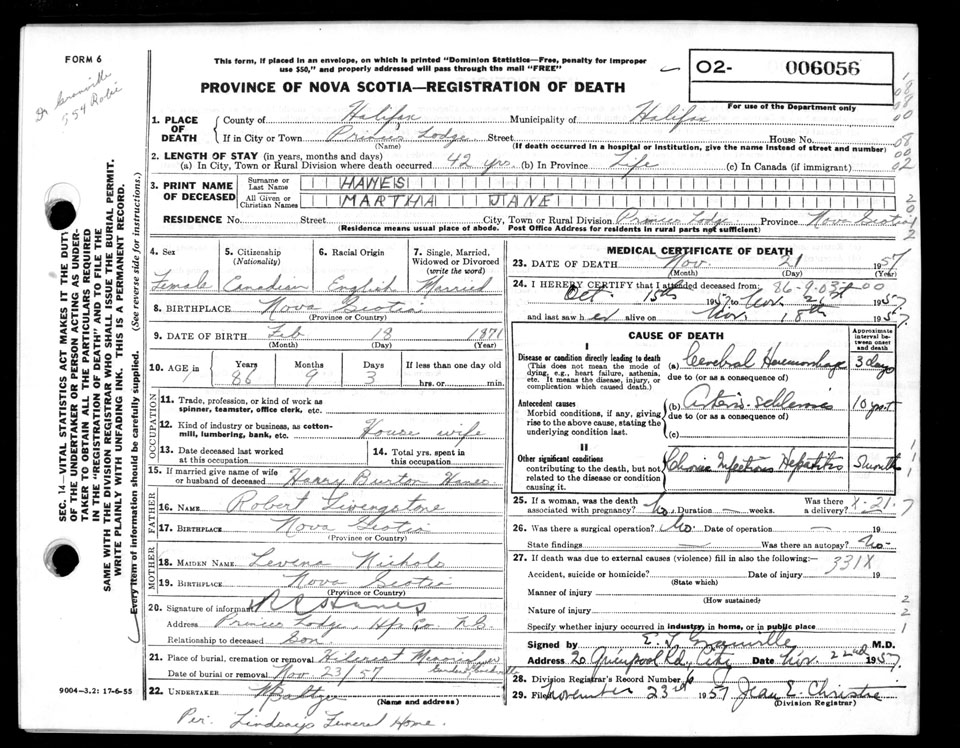 FORM 6
Dr Granville
554 Robie
This form, if placed in an envelope, on which is printed "Dominion Statistics—Free, penalty for improper
use $50," and properly addressed will pass through the mail "FREE"
PROVINCE OF NOVA SCOTIA—REGISTRATION OF DEATH
02- 006056
For use of the Department only
1. PLACE OF DEATH
County of Halifax Municipality of Halifax
If in City or Town Princes Lodge Street House No.
(Name) (If death occurred in a hospital or institution, give the name instead of street and number)
2. LENGTH OF STAY (in years, months and days)
(a) In City, Town or Rural Division where death occurred 42 yrs. (b) In Province Life (c) In Canada (if immigrant)
3. PRINT NAME OF DECEASED
Surname or Last Name HAWES
All Given or Christian Names MARTHA JANE
RESIDENCE No. Street City, Town or Rural Division Princes Lodge Province Nova Scotia
(Residence means usual place of abode. Post Office Address for residents in rural parts not sufficient)
4. Sex 5. Citizenship (Nationality) 6. Racial Origin 7. Single, Married, Widowed or Divorced (write the word)
Female Canadian English Married
8. BIRTHPLACE Nova Scotia
(Province or Country)
9. DATE OF BIRTH Feb 18 1871
(Month) (Day) (Year)
10. AGE in Years Months Days If less than one day old
86 9 3 hrs. or min.
OCCUPATION
11. Trade, profession, or kind of work as
spinner, teamster, office clerk, etc.
12. Kind of industry or business, as cotton-
mill, lumbering, bank, etc. House wife
13. Date deceased last worked
at this occupation
14. Total yrs. spent in
this occupation
15. If married give name of wife
or husband of deceased Harry Burton Hawes
FATHER
16. NAME Robert Livingstone
17. BIRTHPLACE Nova Scotia
(Province or Country)
MOTHER
18. MAIDEN NAME Levina Nichols
19. BIRTHPLACE Nova Scotia
(Province or Country)
20. Signature of informant Hawes
Address Princes Lodge, Hfx Co. N.S.
Relationship to deceased Son
21. Place of burial, cremation or removal Hilcrest
Date of burial or removal Nov 23/57
22. UNDERTAKER
(Name and address)
Per. Lindsay's Funeral Home.
MEDICAL CERTIFICATE OF DEATH
23. DATE OF DEATH Nov. 21 1957
(Month) (Day) (Year)
24. I HEREBY CERTIFY that I attended deceased from: 86-9-03
Oct. 15th 1957 to Nov. 1957
and last saw her alive on Nov. 18th 1957.
CAUSE OF DEATH
Approximate interval between onset and death
I
Disease or condition directly leading to death
(This does not mean the mode of
dying, e.g., heart failure, asthenia,
etc. It means the disease, injury, or
complication which caused death.)
(a) Cerebral Haemorrhage 3 days
due to (or as a consequence of)
Antecedent causes
Morbid conditions, if any, giving
rise to the above cause, stating the
underlying condition last.
(b) 10 yrs +
due to (or as a consequence of)
(c)
II
Other significant conditions
contributing to the death, but not
related to the disease or condition
causing it.
Chronic Infectious Hepatitis
25. If a woman, was the death
associated with pregnancy? No. Duration weeks. Was there a delivery? X-21-7
26. Was there a surgical operation? No. Date of operation 19
State findings Was there an autopsy? No-
27. If death was due to external causes (violence) fill in also the following:- 331X
Accident, suicide or homicide? Date of injury 19
(State which)
Manner of injury
(How sustained)
Nature of injury
Specify whether injury occurred in industry, in home, or in public place
Signed by E. Granville M.D.
Address 20 Quinpool Rd, City Date Nov. 22nd 1957
28. Division Registrar's Record Number
29. Filed November 23rd 1957 Jean E. Christie
(Division Registrar)
SEC. 14—VITAL STATISTICS ACT MAKES IT THE DUTY
OF THE UNDERTAKER OR PERSON ACTING AS UNDER-
TAKER TO OBTAIN ALL THE PARTICULARS REQUIRED
IN THE "REGISTRATION OF DEATH" AND TO FILE THE
SAME WITH THE DIVISION REGISTRAR WHO SHALL ISSUE THE BURIAL PERMIT.
WRITE PLAINLY WITH UNFADING INK. THIS IS A PERMANENT RECORD.
Every item of information should be carefully supplied. (See reverse side for instructions.)
9004-3.2: 17-6-55